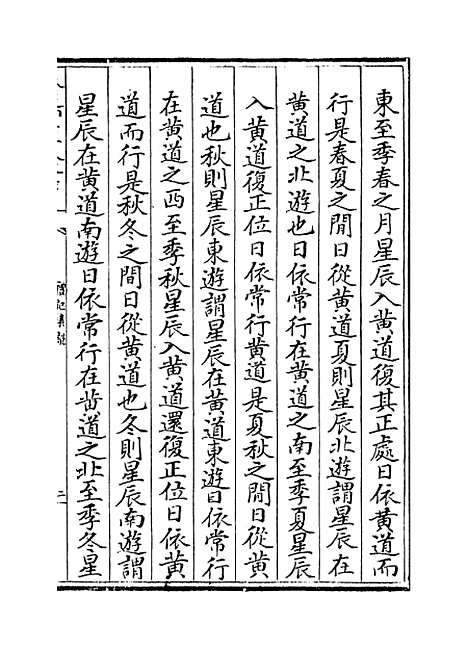 東至季春之月星辰入黄道復其正處日依黄道而
行是春夏之閒日從黄道夏則星辰北遊謂星辰在
黄道之北遊也日依常行在黄道之南至季夏星辰
入黄道復正位日依常行黄道是夏秋之閒日從黄
道也秋則星辰東遊謂星辰在黄道東遊日依常行
在黄道之西至季秋星辰入黄道還復正位日依黄
道而行是秋冬之間日從黄道也冬則星辰南遊謂
星辰在黄道南遊日依常行在黄道之北至季冬星